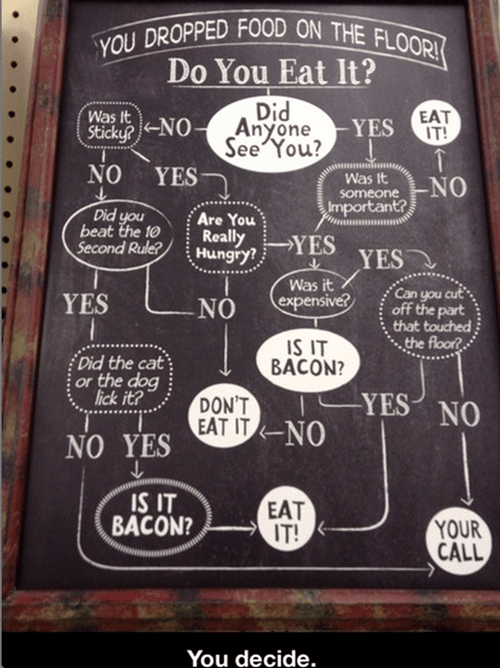 YOU DROPPED FOOD ON THE FLOOR!
Do You Eat It?
Did
Anyone
See You?
NO
YES
Was It
Sticky?
EAT
IT!
NO
YES
Was It
someone
Important?
NO
Did you
beat the 10
Second Rule?
Are You
Really
Hungry?
YES
YES
Was it
expensive?
Can you cut
off the part
that touched
the floor?
YES
NO
IS IT
BACON?
Did the cat
or the dog
lick it?
DON'T
EAT IT
NO
YES
NO
NO YES
IS IT
BACON?
EAT
IT!
YOUR
CALL
You decide.